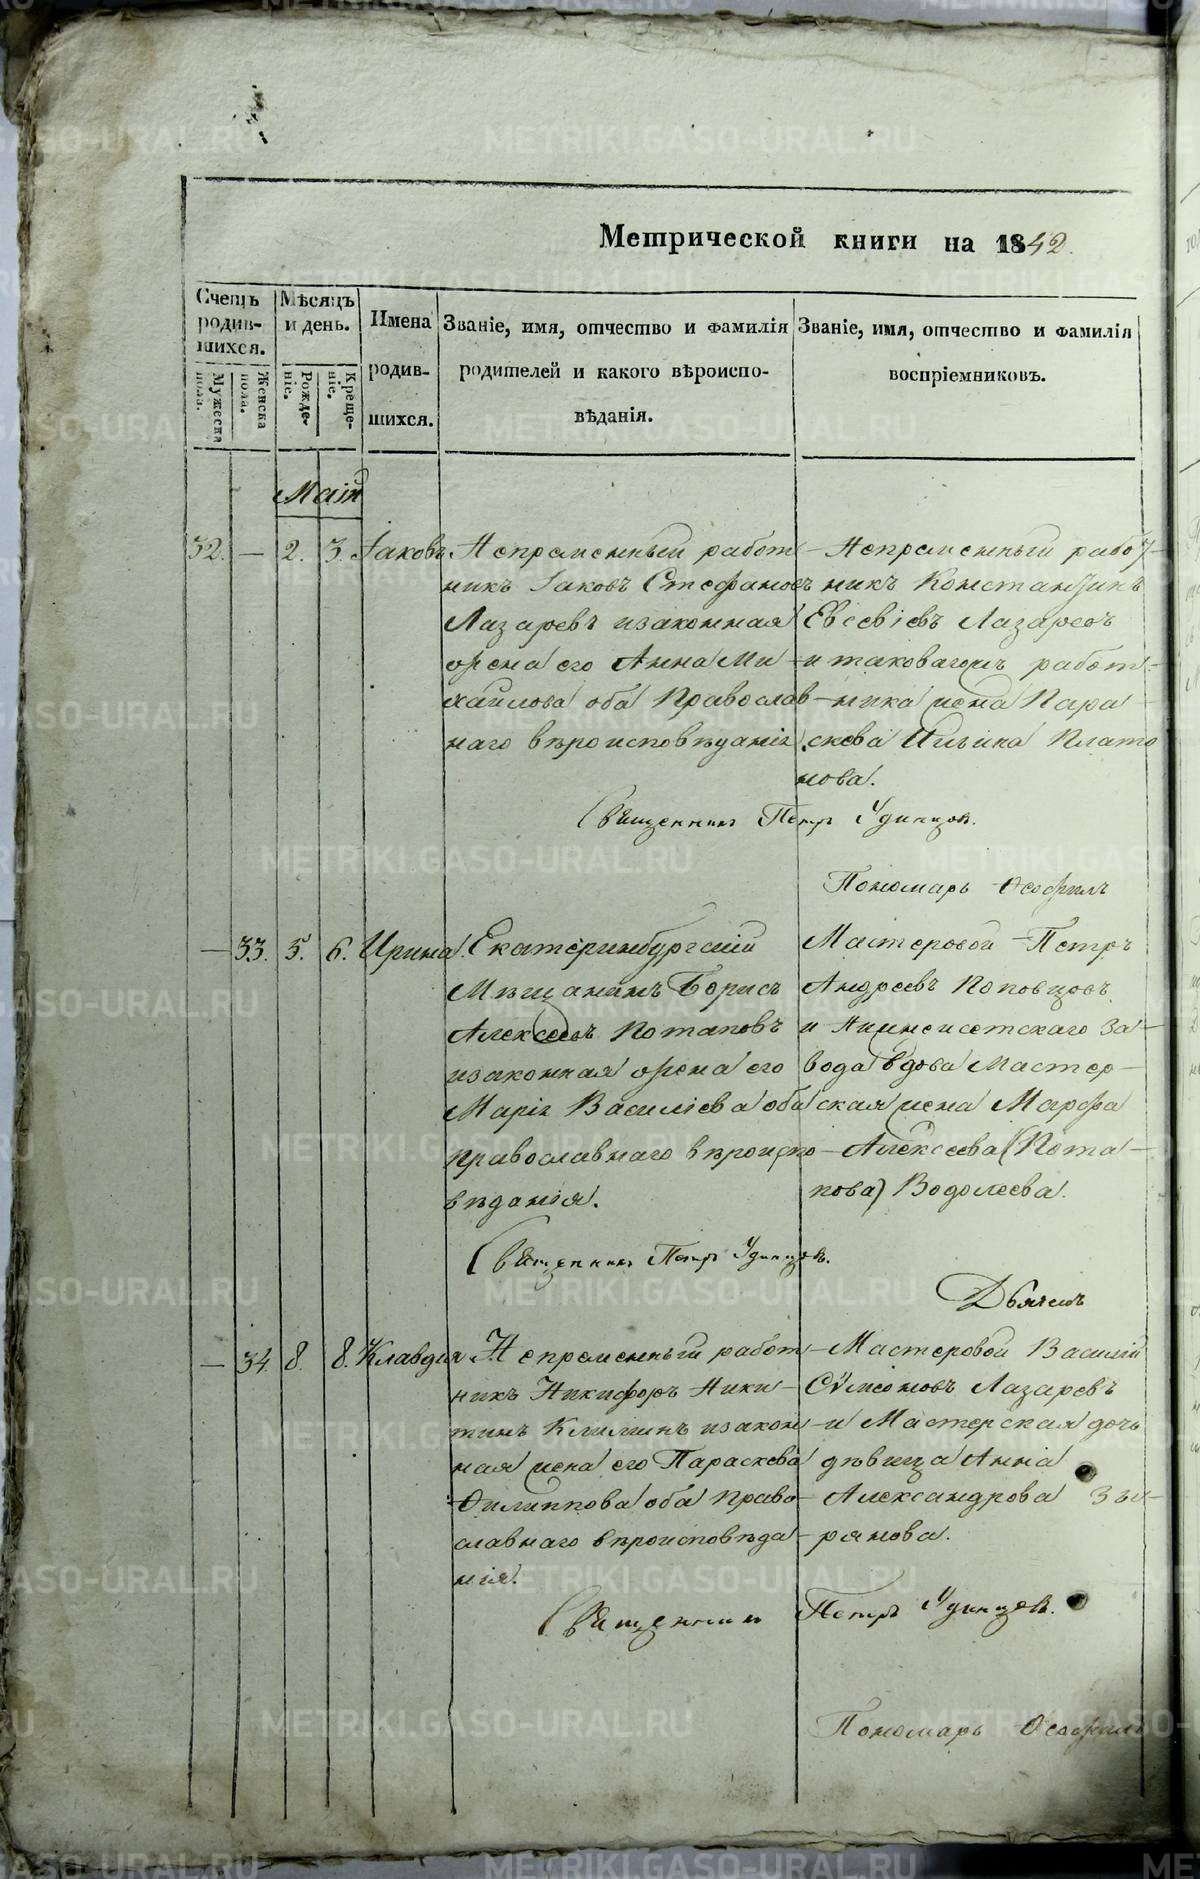 Метрической книги на 1842.
Счетъ родив-шихся.
Мужеска пола.
Женска пола.
Мѣсяцъ и день.
Рожде-ніе.
Креще-ніе.
Имена родив-шихся.
Званіе, имя, отчество и фамилія родителей и какого вѣроиспо-вѣданія.
Званіе, имя, отчество и фамилія воспріемниковъ.
Маій
32. — 2. 3. Іаковъ
Непременный работ
никъ Іаковъ Стефановъ
Лазаревъ изаконная
жена его Анна Ми
хаилова оба Православ
наго вѣроисповѣданія.
Непременный работ
никъ Константинъ
Евсевіевъ Лазаревъ
и таковагожъ работ-
ника жена Пара
скева Ильина Плато
нова.
Священникъ Петръ Удинцов.
Пономарь Ѳеофилъ
— 33. 5. 6. Ирина.
Екатеринбургскій
Мѣщанинъ Борисъ
Алексеевъ Потаповъ
изаконная жена его
Марія Василіева оба
православнаго вѣроиспо
вѣданія.
Мастеровой Петръ
Андреевъ Поповцовъ
и Нишнеисетскаго За-
вода вдова Мастер-
ская жена Марфа
Алексеева (Пота-
пова) Водолеева.
Священникъ Петръ Удинцов.
Дьячекъ
— 34. 8. 8. Клавдия
Непременный работ
никъ Никифоръ Ники-
тинъ Климинъ изакон
ная жена его Параскева
Филиппова оба Право-
славнаго вѣроисповѣда
нія.
Мастеровой Василій
Сѵмеоновъ Лазаревъ
и Мастерская дочь
дѣвица Анна
Александрова Зы-
рянова.
Священникъ Петръ Удинцов.
Пономарь Ѳеофилъ
METRIKI.GASO-URAL.RU